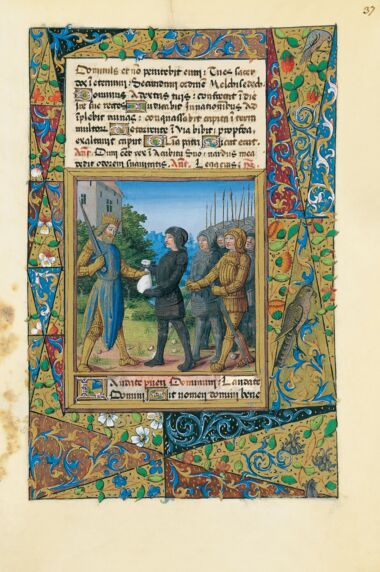 37
Dominus et nō penitebit eum: Tu es sacer
Secundum ordinē Melchisedech.
Dominus a dextris tuis: confregit ī die
ire sue reges Iudicabit in nationibus
implebit ruinas: conquassabit capita ī terra
multorum De torrente ī via bibit: propterea
exaltavit caput Gloria patri Sicut erat.
suo: nardus mea
dedit odorem suavitatis
Laudate pueri Dominum: Laudate
Domini Sit nomen domini bene